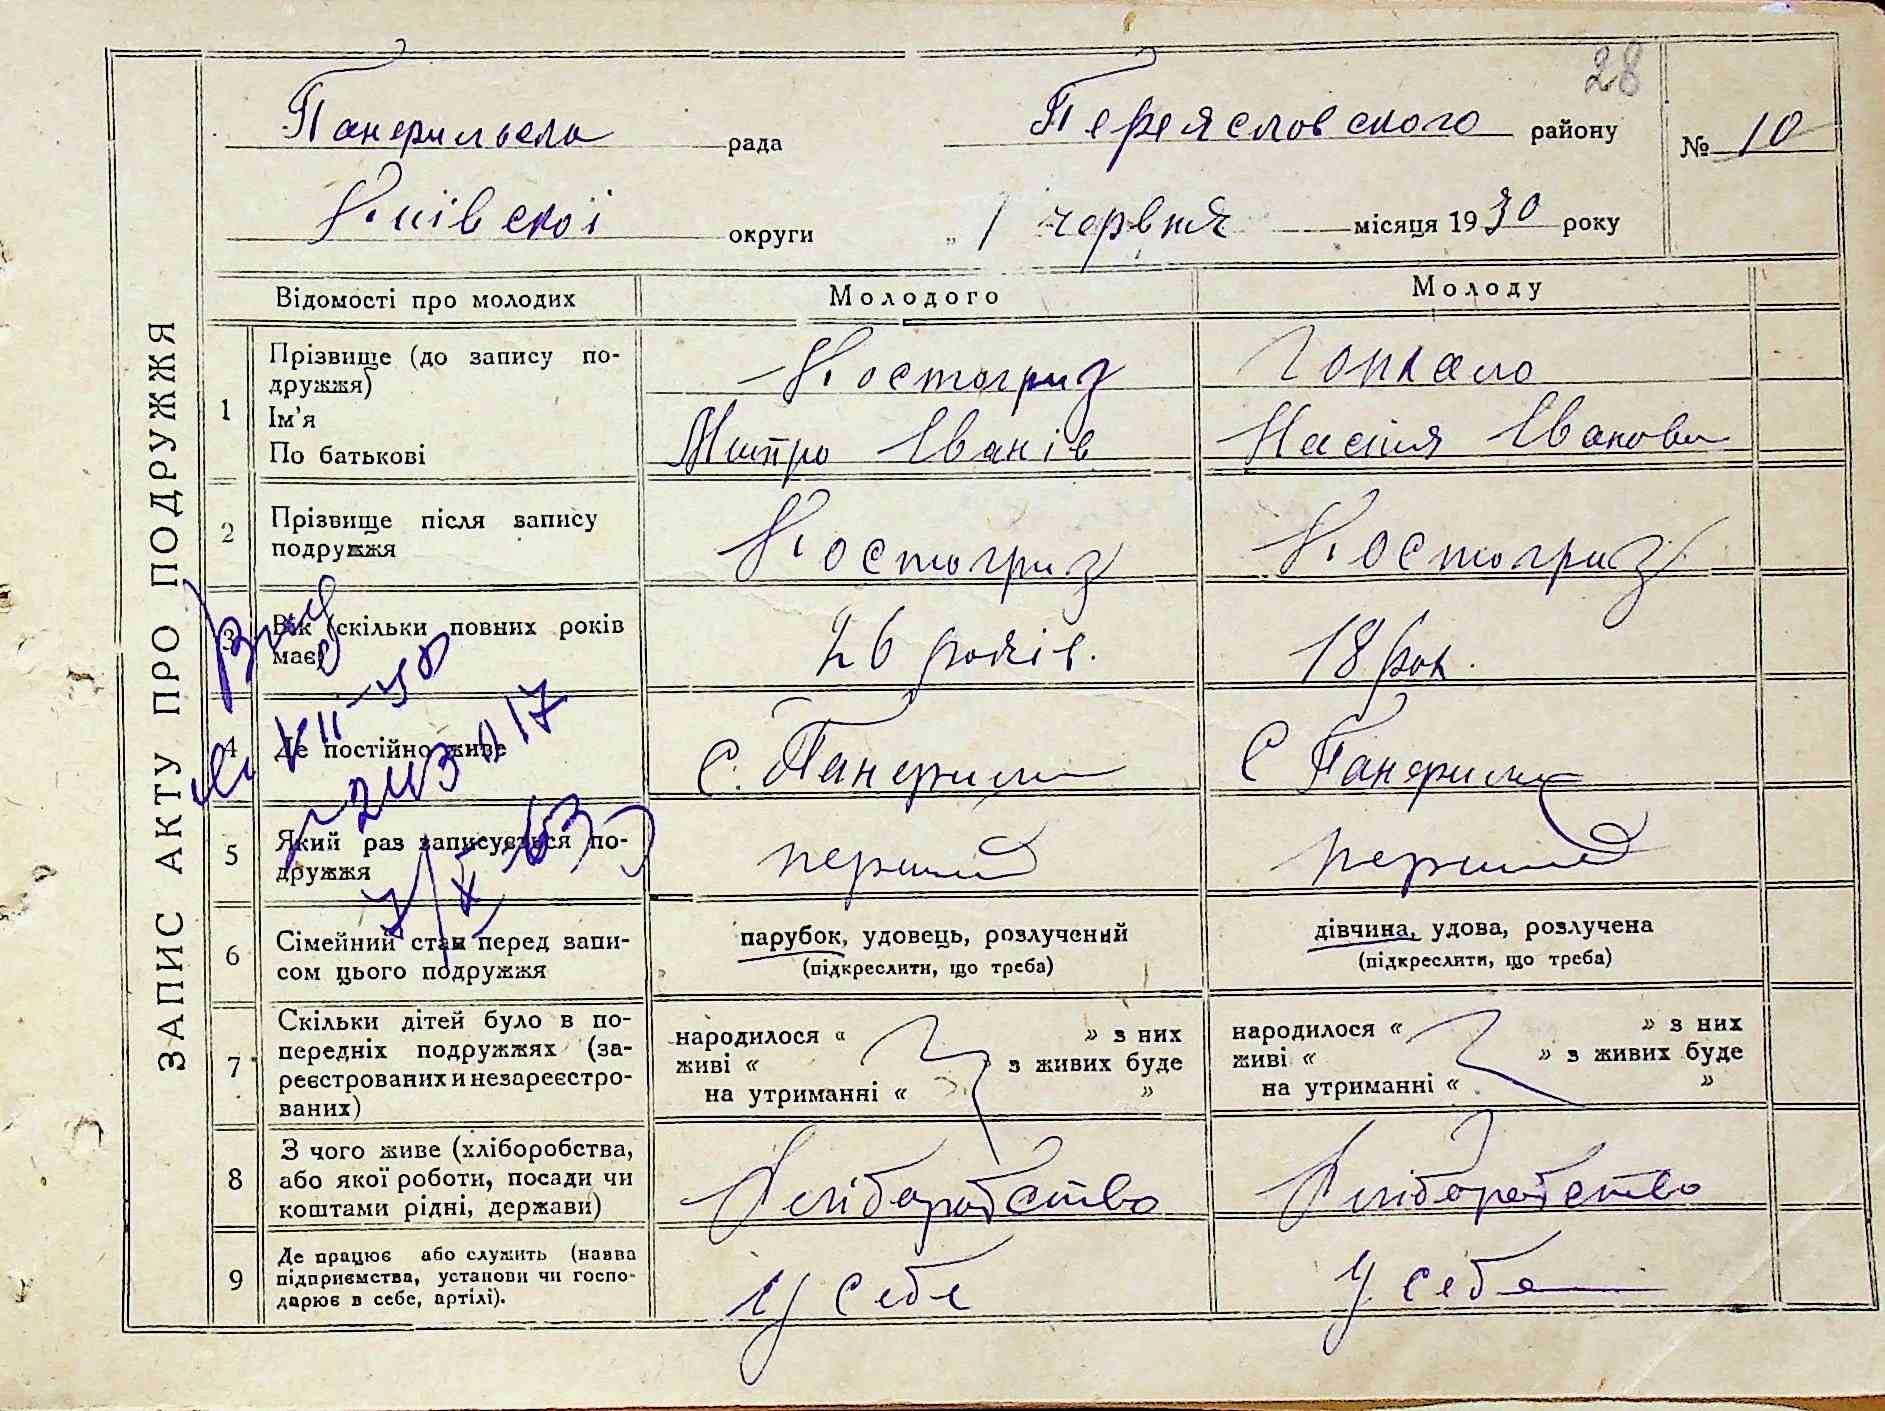 28
ЗАПИС АКТУ ПРО ПОДРУЖЖЯ
Панфильська рада Переясловского району № 10
Київскої округи „ 1 червня місяця 1930 року
Відомості про молодих Молодого Молоду
1 Прізвище (до запису по-
дружжя) Костогриз
Ім'я
По батькові Митро Іванів Настя Іванови
2 Прізвище після запису
подружжя Костогриз Костогриз
3 Вік (скільки повних років
має) 26 років. 18 рок.
4 Де постійно живе С. Панфили С Панфили
5 Який раз записується по-
дружжя перший перший
6 Сімейний стан перед запи-
сом цього подружжя
парубок, удовець, розлучений
(підкреслити, що треба)
дівчина, удова, розлучена
(підкреслити, що треба)
7 Скільки дітей було в по-
передніх подружжях (за-
реєстрованих и незареєстро-
ваних)
народилося « » з них
живі « » з живих буде
на утриманні « »
народилося « » з них
живі « » з живих буде
на утриманні « »
8 З чого живе (хліборобства,
або якої роботи, посади чи
коштами рідні, держави)
Хліборобство Хліборобство
9 Де працює або служить (назва
підприємства, установи чи госпо-
дарює в себе, артілі).
У себе У себе